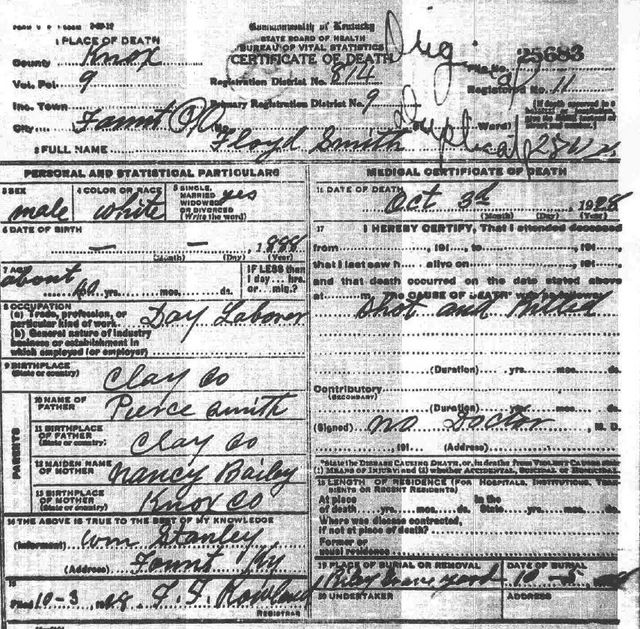 1 PLACE OF DEATH
County Knox
Vot. Pct. 9
Inc. Town
City Fount
Commonwealth of Kentucky
STATE BOARD OF HEALTH
BUREAU OF VITAL STATISTICS
CERTIFICATE OF DEATH
Registration District No. 814
Primary Registration District No. 9
25683
File No.
Registered No. 11
Ward)
2 FULL NAME Floyd Smith
Duplicate
PERSONAL AND STATISTICAL PARTICULARS
3 SEX
male
4 COLOR OR RACE
white
5 SINGLE, MARRIED WIDOWED OR DIVORCED (Write the word)
yes
6 DATE OF BIRTH
— — , 1888
(Month) (Day) (Year)
7 AGE
about
yrs. mos. ds.
IF LESS than
1 day... hrs.
or... min.?
8 OCCUPATION
(a) Trade, profession, or
particular kind of work Day Laborer
(b) General nature of industry
business or establishment in
which employed (or employer)
9 BIRTHPLACE
(State or country) Clay Co
PARENTS
10 NAME OF
FATHER Pierce Smith
11 BIRTHPLACE
OF FATHER
(State or country) Clay Co
12 MAIDEN NAME
OF MOTHER Nancy Bailey
13 BIRTHPLACE
OF MOTHER
(State or country) Knox Co
14 THE ABOVE IS TRUE TO THE BEST OF MY KNOWLEDGE
(Informant) Wm Stanley
(Address) Fount Ky
15
Filed 10-3
REGISTRAR
MEDICAL CERTIFICATE OF DEATH
16 DATE OF DEATH
Oct 3rd , 1928
(Month) (Day) (Year)
17 I HEREBY CERTIFY, That I attended deceased
from , 191 , to , 191
that I last saw h alive on , 191
and that death occurred on the date stated above
at m. The CAUSE OF DEATH
Shot and Killed
(Duration) yrs. mos. ds.
Contributory
(SECONDARY)
(Duration) yrs. mos. ds.
(Signed) No Doctor , M. D.
, 191 (Address)
*State the DISEASE CAUSING DEATH, or, in deaths from VIOLENT CAUSES state
(1) MEANS OF INJURY; and (2) whether ACCIDENTAL, SUICIDAL or HOMICIDAL
18 LENGTH OF RESIDENCE (FOR HOSPITALS, INSTITUTIONS, TRANSIENTS OR RECENT RESIDENTS)
At place In the
of death yrs. mos. ds. State yrs. mos. ds.
Where was disease contracted,
if not at place of death?
Former or
usual residence
19 PLACE OF BURIAL OR REMOVAL
DATE OF BURIAL
10-5
20 UNDERTAKER
ADDRESS